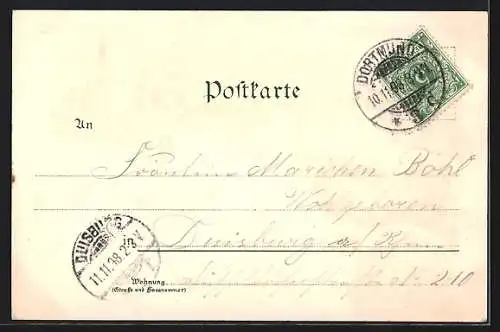 DORTMUND
10.11.98
Postkarte
An
Fräulein Mariechen Böhl
Wohlgeboren
in Duisburg a/Rhein
DUISBURG
11.11.98
Wohnung
(Straße und Hausnummer)
210